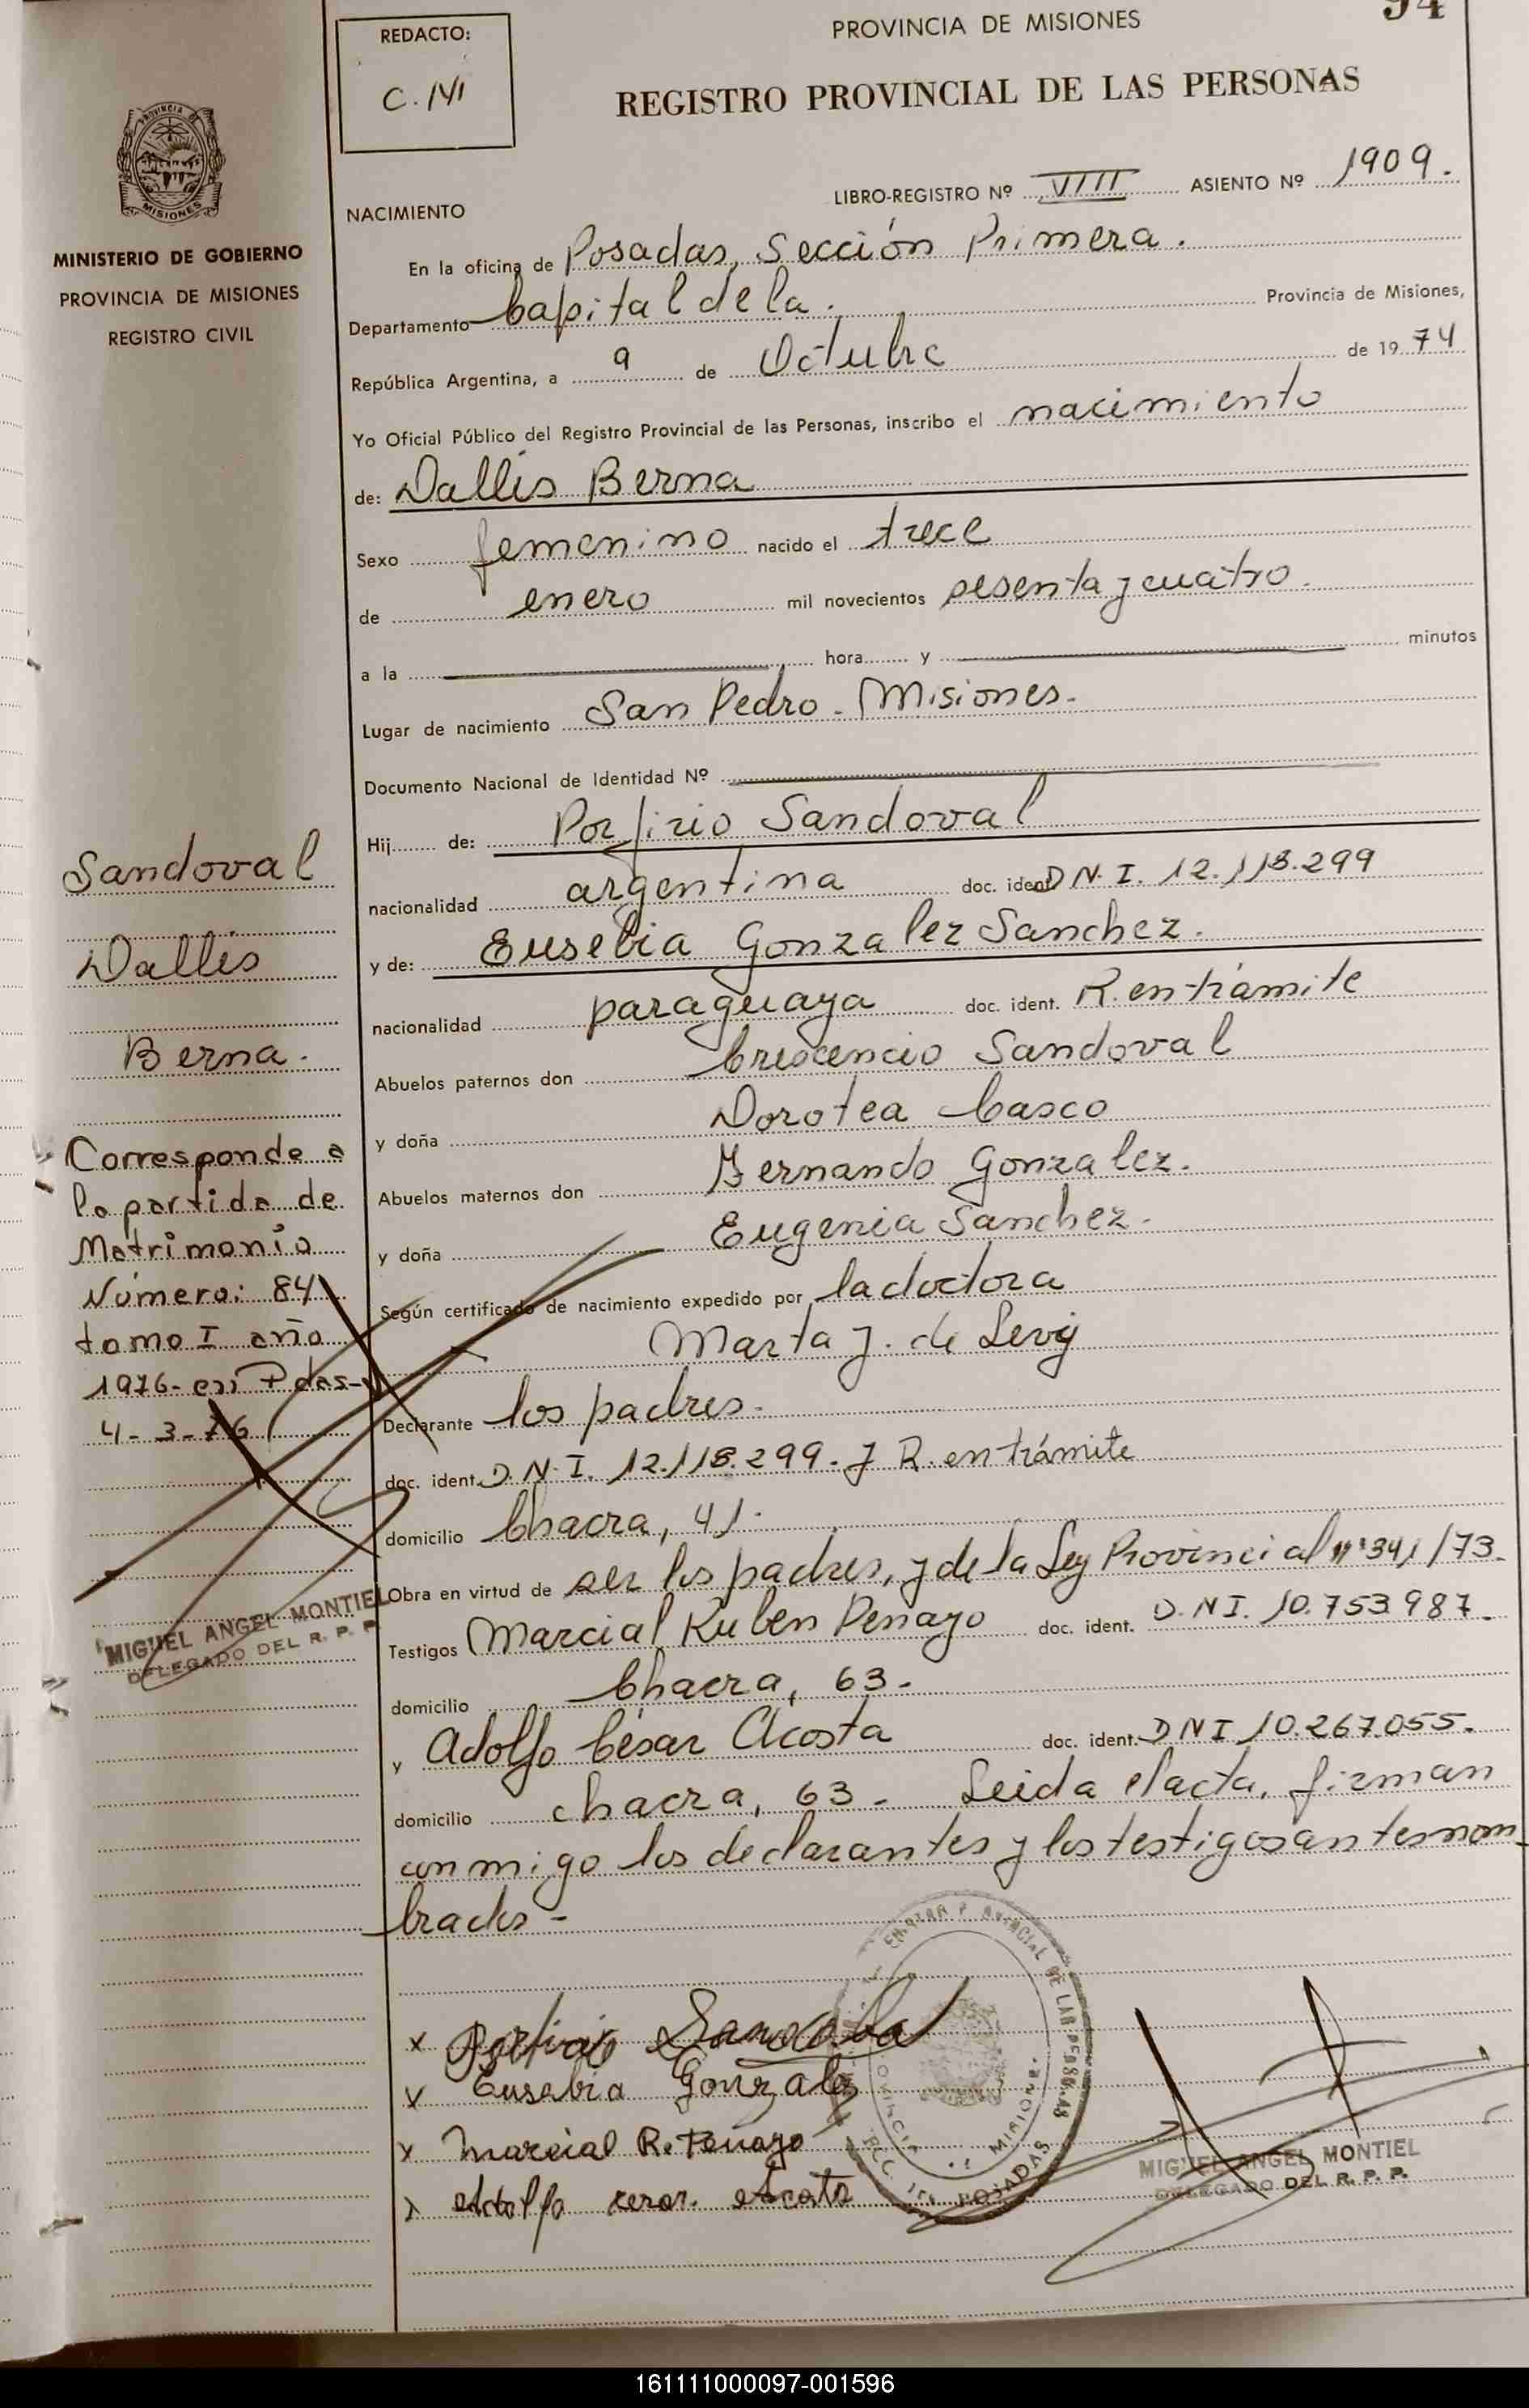 94
REDACTO:
C. 141
PROVINCIA DE MISIONES
REGISTRO PROVINCIAL DE LAS PERSONAS
PROVINCIA
MISIONES
MINISTERIO DE GOBIERNO
PROVINCIA DE MISIONES
REGISTRO CIVIL
LIBRO-REGISTRO Nº VIII ASIENTO Nº 1909.
NACIMIENTO
En la oficina de Posadas, Sección Primera.
Departamento Capital de la. Provincia de Misiones,
República Argentina, a 9 de Octubre de 1974
Yo Oficial Público del Registro Provincial de las Personas, inscribo el nacimiento
de: Dallis Berna
Sexo femenino nacido el trece
de enero mil novecientos sesenta y cuatro.
a la hora y minutos
Lugar de nacimiento San Pedro - Misiones.
Documento Nacional de Identidad Nº
Hij de: Porfirio Sandoval
nacionalidad argentina doc. ident. D N. I. 12.118.299
y de: Eusebia Gonzalez Sanchez.
nacionalidad paraguaya doc. ident. R. en trámite
Abuelos paternos don Crescencio Sandoval
y doña Dorotea Casco
Abuelos maternos don Fernando Gonzalez.
y doña Eugenia Sanchez.
Según certificado de nacimiento expedido por la doctora
Marta J. de Levy
Declarante los padres.
doc. ident. D. N. I. 12.118.299. y R. en trámite
domicilio Chacra, 41.
Obra en virtud de ser los padres, y de la Ley Provincial nº 341/73.
Testigos Marcial Ruben Penayo doc. ident. D. N I. 10.753.987.
domicilio Chacra, 63.
y Adolfo César Acosta doc. ident. D N I 10.267.055.
domicilio chacra, 63 - Leida el acta, firman
conmigo los declarantes y los testigos antes nom
brados -
Sandoval
Dallis
Berna.
Corresponde a
la partida de
Matrimonio
Número: 84
tomo I año
1976- en Pdas-
4-3-76
MIGUEL ANGEL MONTIEL
DELEGADO DEL R. P. P
x Porfirio Sandoval
x Eusebia Gonzalez
x Marcial R. Penayo
x Adolfo cesar Acosta
DE LAS PERSONAS
POSADAS
MIGUEL ANGEL MONTIEL
DELEGADO DEL R. P. P.
161111000097-001596